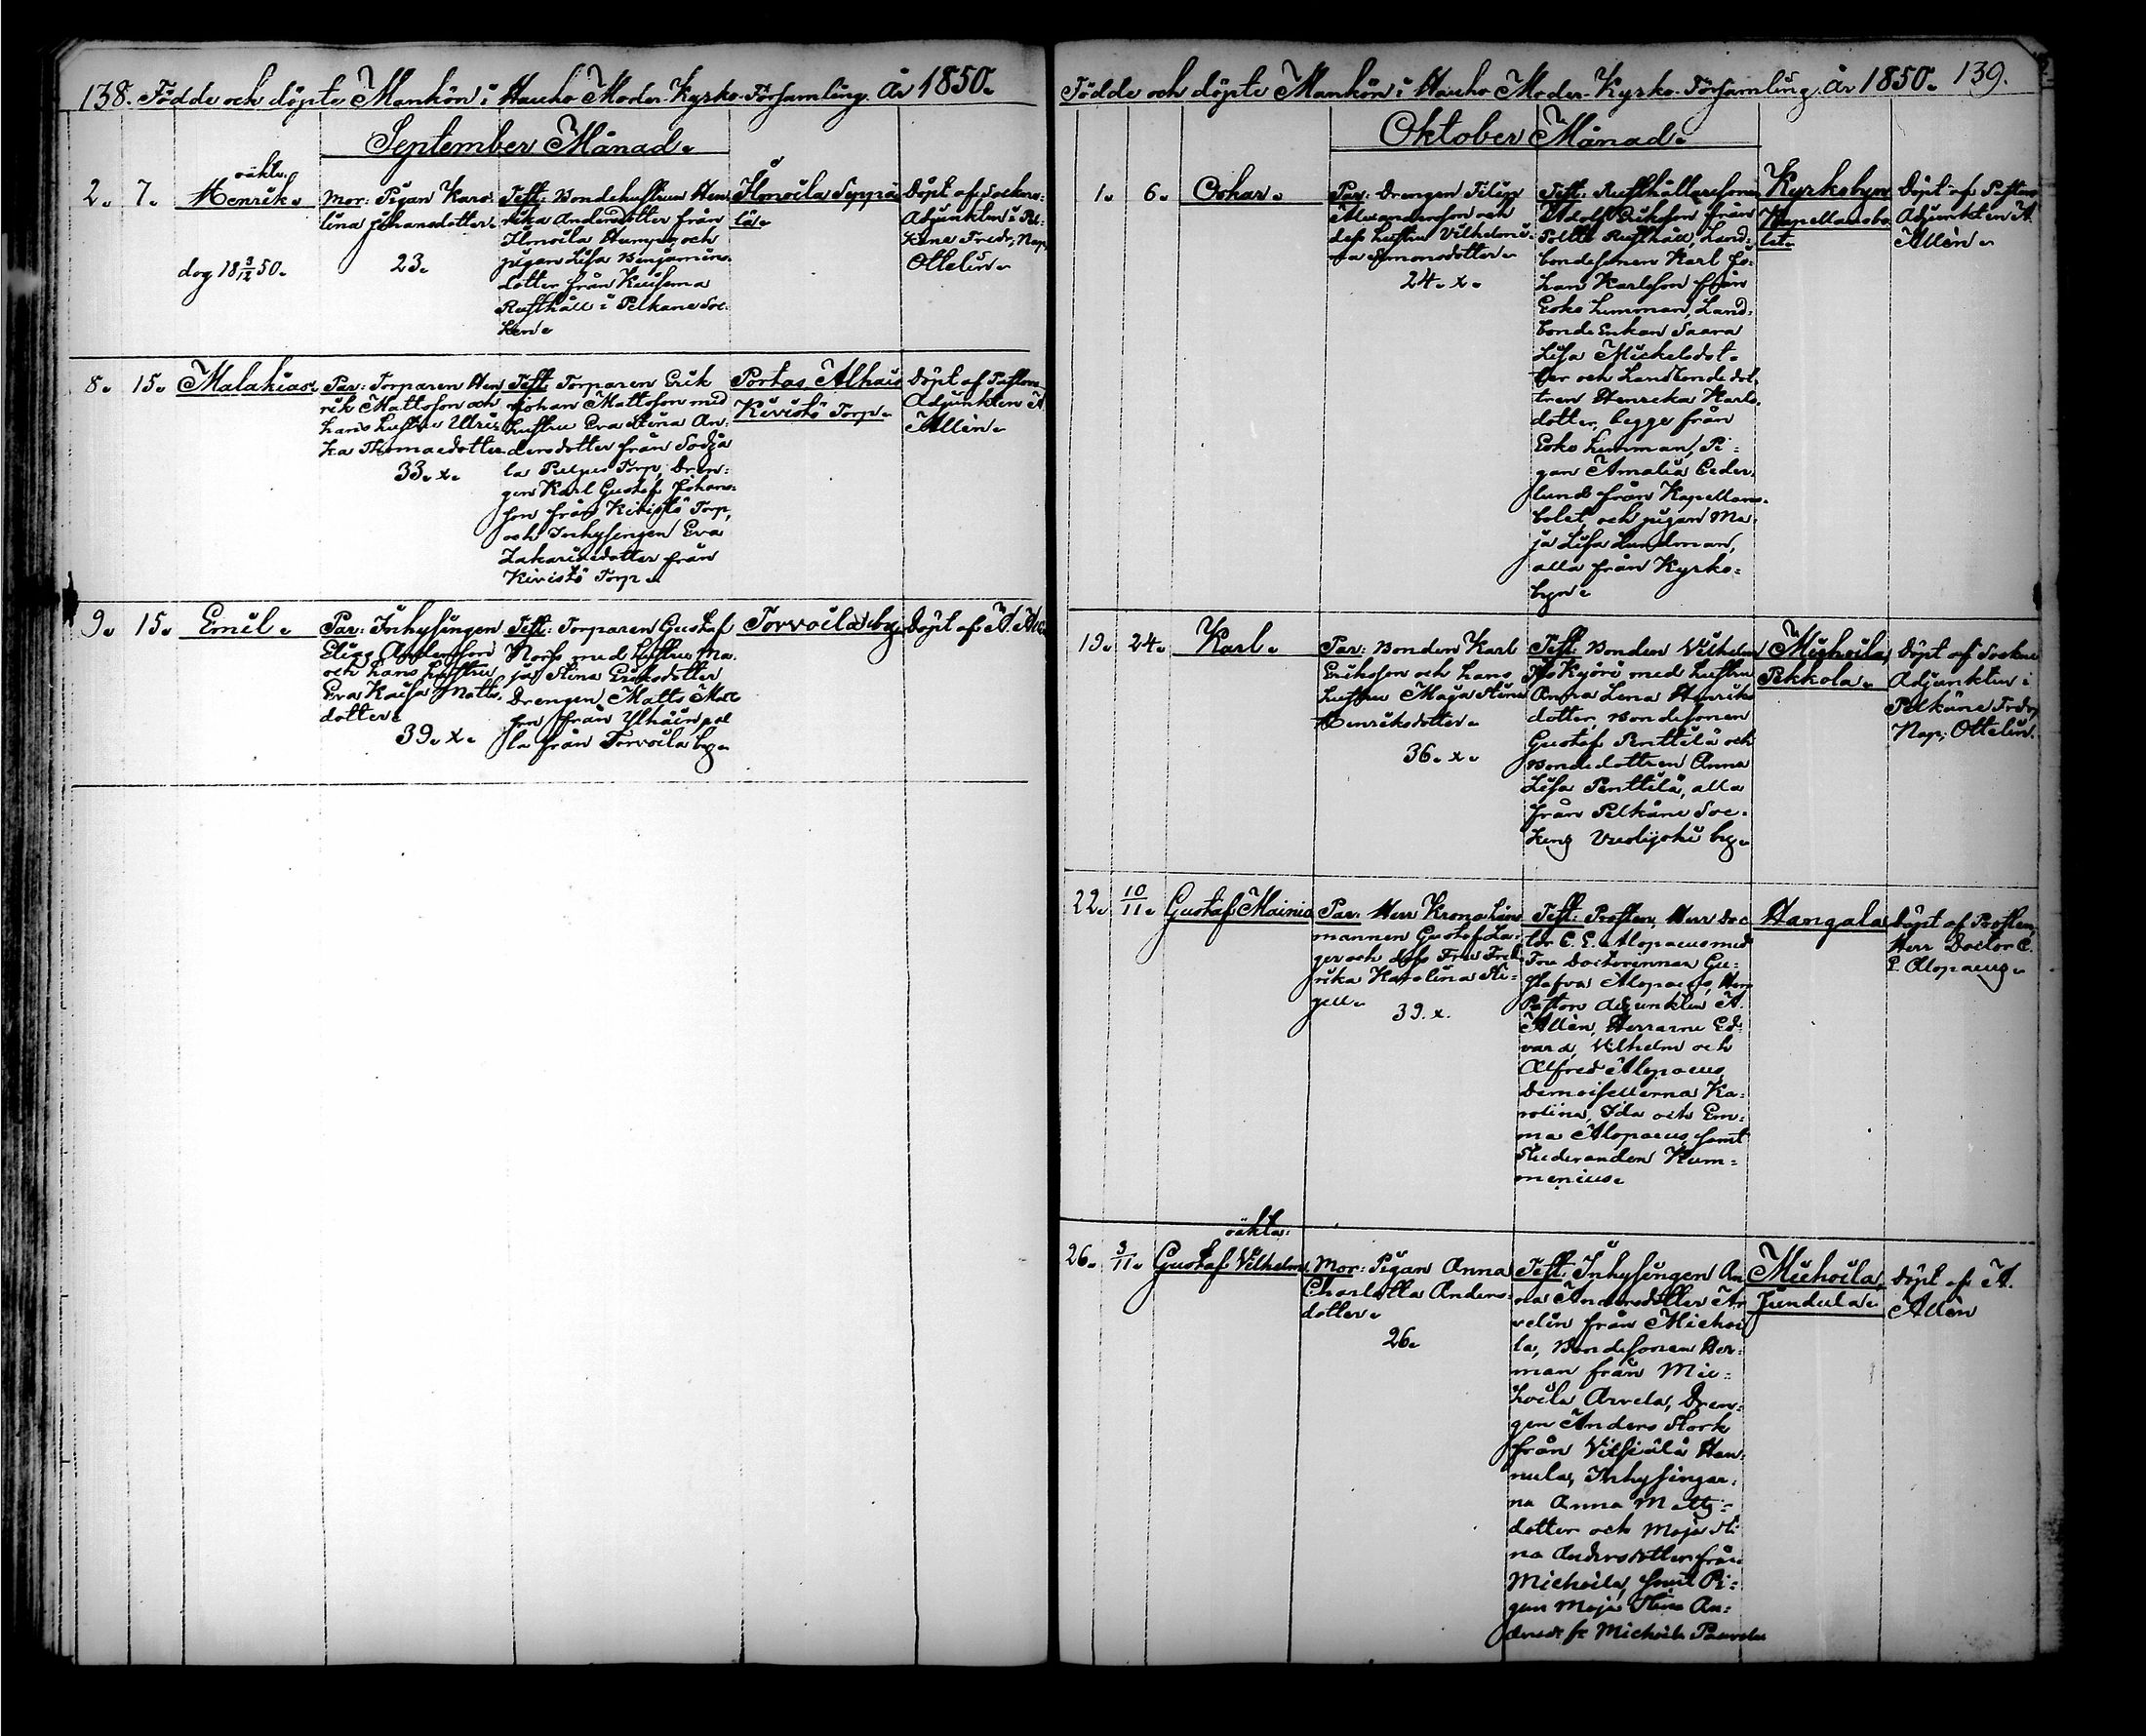 138. Födde och döpte Mankön i Hauho Moder-Kyrko-Församling År 1850.
September Månad.
oäkta.
2. 7. Henrik.
dog 18 3/12 50.
Mor: Pigan Karo-
lina Johansdotter.
23.
Test: Bondehustrun Hen-
rika Andersdotter från
Ilmoila Humppi och
pigan Lisa Benjamins-
dotter från
Rusthåll i Pelkäne Soc-
ken.
Ilmoila Seppä-
lä.
Döpt af Sockne-
Adjunkten i Pel-
käne Fredr. Nap.
Ottelin.
8. 15. Malakias.
Par: Torparen Hen-
rik Mattsson och
hans hustru Ulri-
ka Thomasdotter.
33. x.
Test: Torparen Erik
Johan Mattsson med
hustru Eva Stina An-
dersdotter från
Torp, Dren-
gen Karl Gustaf Johans-
son från Kivistö Torp,
och Inhysingen Eva
Zakariedotter från
Kivistö Torp.
Portas Alhais
Kivistö Torp.
Döpt af Pastors
Adjunkten A.
Allén.
9. 15. Emil.
Par: Inhysingen
Elias Andersson
och hans hustru
Eva Kaisa Matts-
dotter.
39. x.
Test: Torparen Gustaf
Norss med hustru Ma-
ja Stina Eriksdotter
Drengen Matts
son från
la från Torvoila by.
Torvoila by.
Döpt af A.
Födde och döpte Mankön i Hauho Moder-Kyrko-Församling År 1850. 139.
Oktober Månad.
1. 6. Oskar.
Par: Drengen Filip
Alexandersson och
dess hustru Vilhelmi-
na Simonsdotter.
24. x.
Test: Rusthållaresonen
Adolf Eriksson från
Rusthåll, Land-
bondesonen Karl Jo-
han Karlsson från
Eskо Lumman, Land-
bonde Enkan Saara
Lisa Mickelsdot-
ter och Landbondedot-
tren Henrika Karls-
dotter, begge från
Esko Lumman, Pi-
gan Amalia Ceder-
lund från Kapellans-
bolet, och pigan Ma-
ja Lisa Lundman,
alla från Kyrko-
byn.
Kyrkobyn
Kapellansbo-
let.
Döpt af Pastors
Adjunkten A.
Allén.
19. 24. Karl.
Par: Bonden Karl
Eriksson och hans
hustru Maja Stina
Henriksdotter.
36. x.
Test: Bonden Vilhelm
med hustru
Anna Lena Henriks-
dotter, Bondesonen
Gustaf Penttilä och
Bondedottren Anna
Lisa Penttilä, alla
från Pelkäne Soc-
kens by.
Miehoila,
Pekkola.
Döpt af Sockne
Adjunkten i
Pelkäne Fredr.
Nap. Ottelin.
22. 10/11. Gustaf Mainio
Par: Herr Krono Läns-
mannen Gustaf La-
ger och dess Fru Fred-
rika Karolina Ri-
gell.
39. x.
Test: Prosten, Herr Doc-
tor C. E. Alopaeus med
Fru Doctorinnan Gu-
stafva Alopaeus, Herr
Pastors Adjunkten A.
Allén, Herrarne Ed-
vard, Vilhelm och
Alfred Alopaeus,
Demoisellerna Ka-
rolina, Ida och Em-
ma Alopaeus samt
Studeranden Kum-
menius.
Hangala
Döpt af Prosten,
Herr Doctor C.
E. Alopaeus.
oäkta:
26. 3/11. Gustaf Vilhelm.
Mor: Pigan Anna
Charlotta Anders-
dotter.
26.
Test: Inhysingen An-
na Andersdotter Ar-
velin från Miehoi-
la, Bondesonen Her-
man från Mie-
hoila Arvela, Dren-
gen Anders Stork
från Vitsiälä Han-
nula, Inhysingar-
na Anna Matts-
dotter och Maja Sti-
na Andersdotter från
Miehoila, samt Pi-
gan Maja Stina An-
dersdr fr Miehoila Paavola
Miehoila,
Jundula.
Döpt af A.
Allén